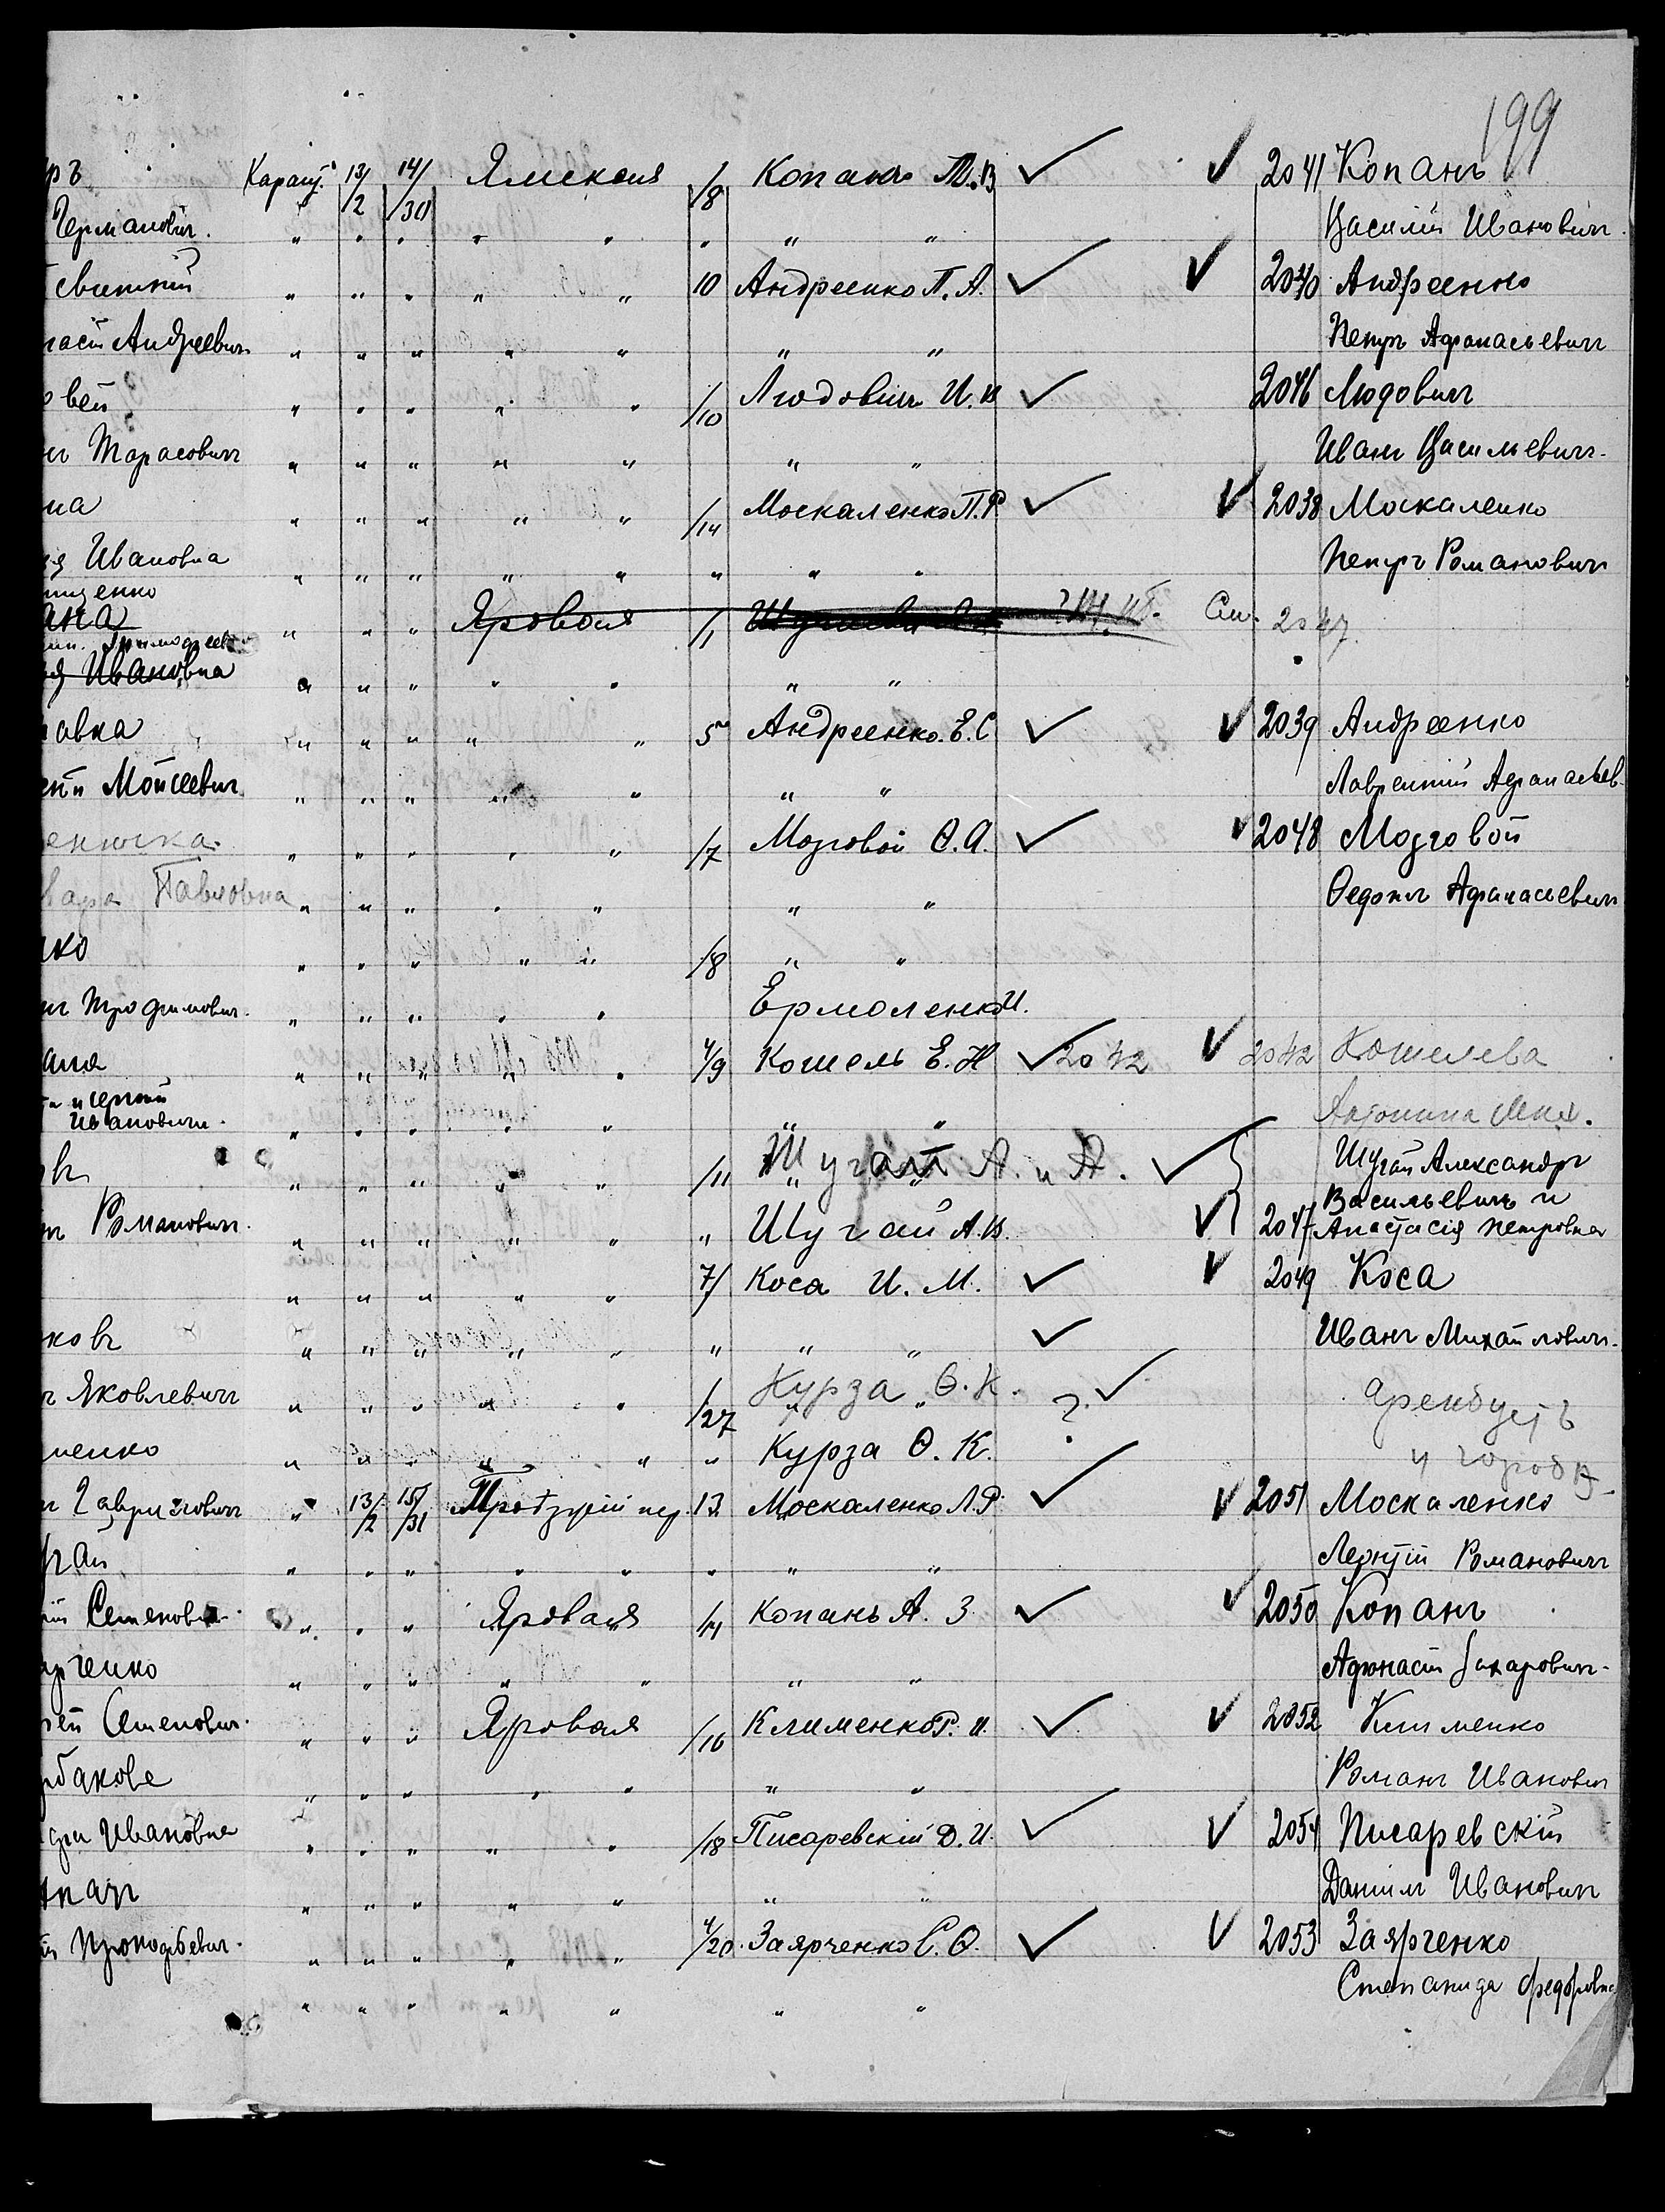 199
ръ Карац. 13/2 14/30 Ямская /8 Копань В. ✓ ✓ 2041 Копань
Германович. " " " " " " " " " Василій Ивановичъ.
свитскій " " " " " 10 Андреенко П. А. ✓ ✓ 2040 Андреенко
Андреевич " " " " " " " Петръ Афанасьевичъ
овей " " " " " /10 Людовичъ И. В ✓ 2046 Людовичъ
Тарасовичъ " " " " " " " Иванъ Васильевичъ.
на " " " " " /14 Москаленко П. Р ✓ ✓ 2038 Москаленко
Ивановна " " " " " " " " Петръ Романовичъ
енко
ана " " " Яровая /1 См. 2047.
Ивановна " " " " " " "
авка " " " " " 5 Андреенко. Е. С ✓ ✓ 2039 Андреенко
Мойсеевич. " " " " " " " Лаврентій Афанасьев.
енюска. " " " " " /7 Мозговой Ѳ. А. ✓ ✓ 2048 Мозговой
Павловна " " " " " " " Ѳедотъ Афанасьевичъ
ко " " " " " /8 " "
Трофимович. " " " " " Ермоленко И.
ана " " " " " 4/9 Кошель Е. Н ✓ 2042 ✓ 2042 Кошелева
и Сергій
Ивановичи. " " " " " " " Антонина Мих.
въ " " " " " /11 Шугай А. и А. ✓ Шугай Александръ
Васильевичъ и
Романовичъ. " " " " " " Шугай А. В. ✓ 2047 Анастасія Петровна
" " " " " 7/ Коса И. М. ✓ ✓ 2049 Коса
ковъ " " " " " " " " ✓ Иванъ Михайловичъ.
Яковлевичъ " " " " " /27 Курза Ѳ. К. ? ✓ Арендуетъ
енко " " " " " " Курза Ѳ. К. у города
Гавриловичъ " 13/2 15/31 Проезжій пер. 12 Москаленко Л. Р. ✓ ✓ 2051 Москаленко
" " " " " " " " Леонтій Романовичъ
Семенович. " " " Яровая /14 Копань А. З. ✓ ✓ 2050 Копань
рченко " " " " " " " Афонасій Захаровичъ.
Семенович. " " " Яровая /16 Клименко Р. И. ✓ ✓ 2052 Клименко
бакове " " " " " " " Романъ Иванович
Ивановна " " " " " /18 Писаревскій Д. И. ✓ ✓ 2054 Писаревскій
" " " " " " " Даніилъ Ивановичъ
" " " " " 4/20. Заярченко С. Ѳ. ✓ ✓ 2053 Заярченко
" " " " " " " Степанида Федоровна